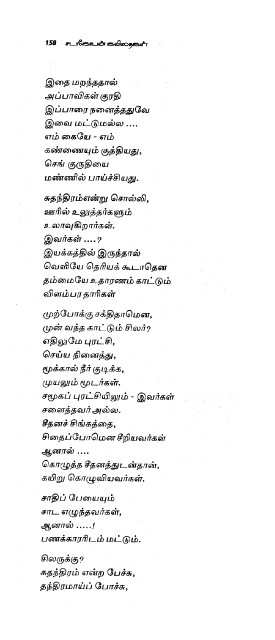 158 சடாகோபன் கவிதைகள்
இதை மறந்ததால்
அப்பாவிகள் குரதி
இப்பாரை நனைத்ததுவே
இவை மட்டுமல்ல ....
எம் கையே - எம்
கண்ணையும் குத்தியது,
செங் குருதியை
மண்ணில் பாய்ச்சியது.
சுதந்திரம்என்று சொல்லி,
ஊரில் உலுத்தர்களும்
உலாவுகிறார்கள்.
இவர்கள் ....?
இயக்கத்தில் இருந்தால்
வெளியே தெரியக் கூடாதென
தம்மையே உதாரணம் காட்டும்
விளம்பர தாரிகள்
முற்போக்கு சக்திதாமென,
முன் வந்த காட்டும் சிலர்?
எதிலுமே புரட்சி,
செய்ய நினைத்து,
மூக்கால் நீர் குடிக்க,
முயலும் மூடர்கள்.
சமூகப் புரட்சியிலும் - இவர்கள்
சளைத்தவர் அல்ல.
சீதனச் சிங்கத்தை,
சிதைப்போமென சீறியவர்கள்
ஆனால் ....
கொழுத்த சீதனத்துடன்தான்,
கயிறு கொழுவியவர்கள்.
சாதிப் பேயையும்
சாட எழுந்தவர்கள்,
ஆனால் .....!
பணக்காரரிடம் மட்டும்.
சிலருக்கு?
சுதந்திரம் என்ற பேச்சு,
தந்திரமாய்ப் போச்சு,